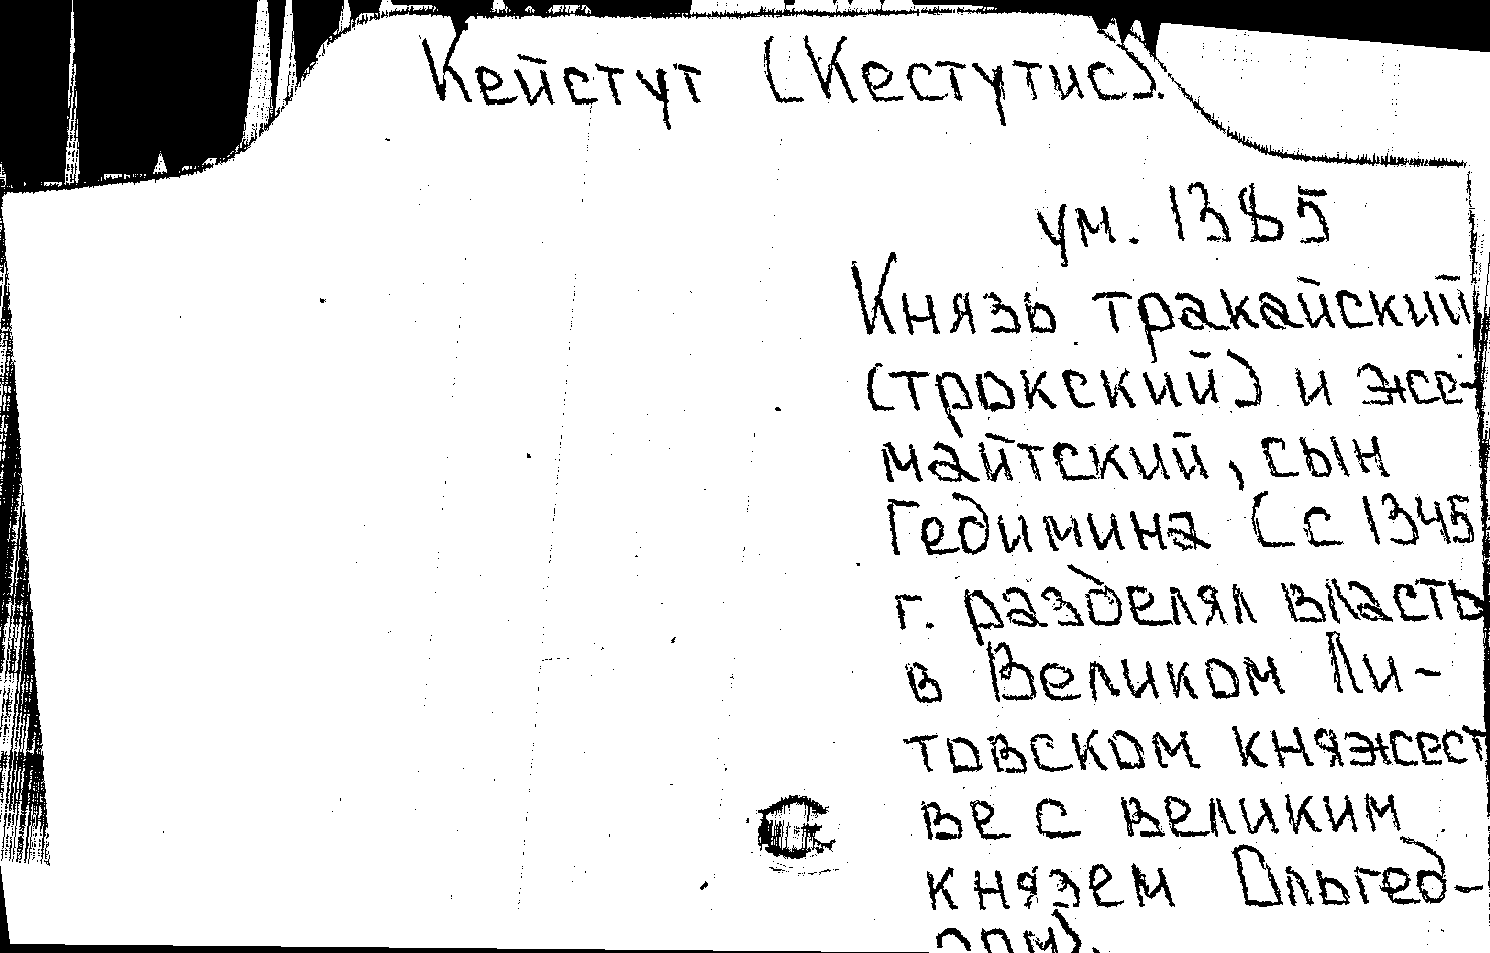 Кейстут (Кестутис).
ум. 1385
Князь тракайский
(трокский) и же-
майтский, сын
Гедимина (с 1345
г. разделял власть
в Великом Ли-
товском княжест
ве с великим
князем Ольгед-
ром).